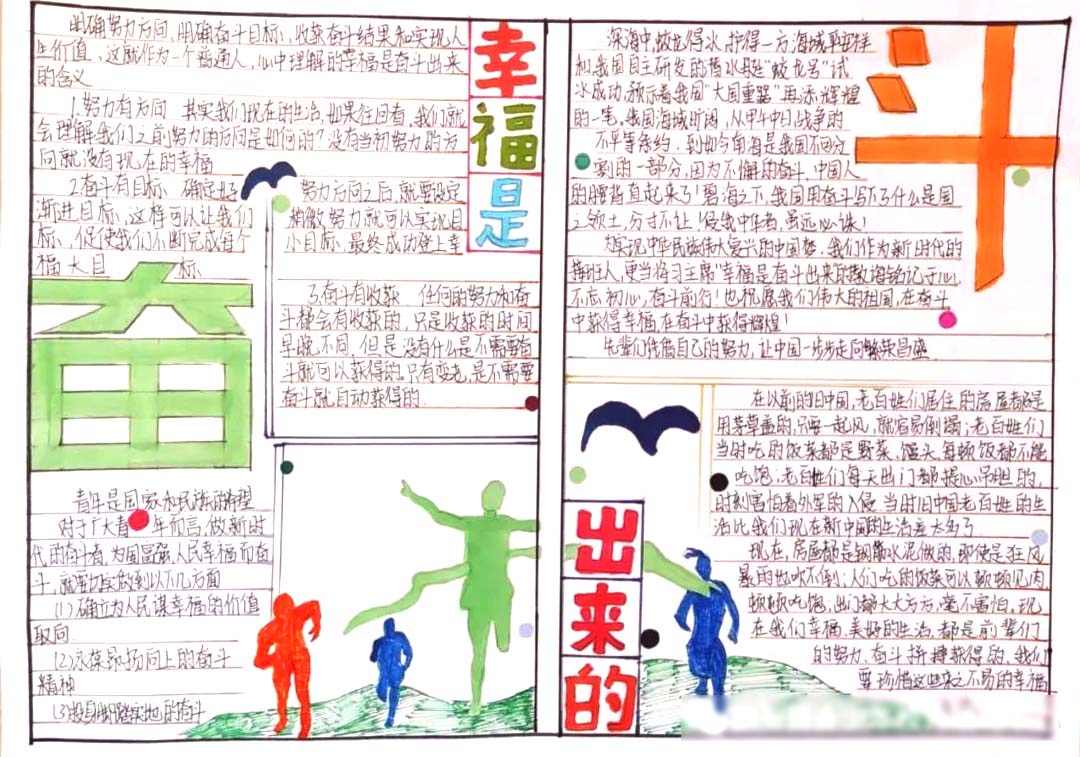 幸福是
奋
斗
出来的
明确努力方向、明确奋斗目标、收获奋斗结果和实现人
生价值,这就作为一个普通人,心中理解的幸福是奋斗出来
的含义
1.努力有方向 其实我们现在的生活,如果往回看,我们就
会理解我们之前努力的方向是如何的?没有当初努力的方
向就没有现在的幸福
2.奋斗有目标 确定好 努力方向之后,就要设定
渐进目标,这样可以让我们 稍微努力就可以实现目
标,促使我们不断完成每个 小目标,最终成功登上幸
福大目 标
3.奋斗有收获 任何的努力和奋
斗都会有收获的,只是收获的时间
早晚不同,但是没有什么是不需要奋
斗就可以获得的,只有变老,是不需要
奋斗就自动获得的.
青年是国家和民族的希望
对于广大青年而言,做新时
代的奋斗者,为国富强,人民幸福而奋
斗,就要切实的到以下几方面
(1)确立为人民谋幸福的价值
取向.
(2)永葆昂扬向上的奋斗
精神
(3)投身脚踏实地的奋斗
深海中,蛟龙得水,护得一方海域平安祥
和,我国自主研发的潜水艇"蛟龙号"试
水成功,预示着我国"大国重器"再添辉煌
的一笔,我国海域旷阔,从甲午中日战争的
不平等条约,到如今南海是我国不可分
割的一部分,因为不懈的奋斗,中国人
的腰背直起来了!碧海之下,我国用奋斗写下了什么是国
之领土,分寸不让!侵我中华者,虽远必诛!
为实现中华民族伟大复兴的中国梦,我们作为新时代的
接班人,更当将习主席"幸福是奋斗出来的"教诲铭记于心,
不忘初心,奋斗前行!也祝愿我们伟大的祖国,在奋斗
中获得幸福,在奋斗中获得辉煌!
先辈们凭借自己的努力,让中国一步步走向繁荣昌盛
在以前的旧中国,老百姓们居住的房屋都是
用茅草盖的,只要一起风,就容易倒塌;老百姓们
当时吃的饭菜都是野菜、馒头,每顿饭都不能
吃饱;老百姓们每天出门都提心吊胆的,
时刻害怕着外军的入侵.当时旧中国老百姓的生
活比我们现在新中国的生活差太多了.
现在,房屋都是钢筋水泥做的,即使是狂风
暴雨也吹不倒;人们吃的饭菜可以顿顿见肉,
顿顿吃饱;出门都大大方方,毫不害怕,现
在我们幸福、美好的生活,都是前辈们
的努力、奋斗拼搏获得的,我们
要珍惜这些来之不易的幸福